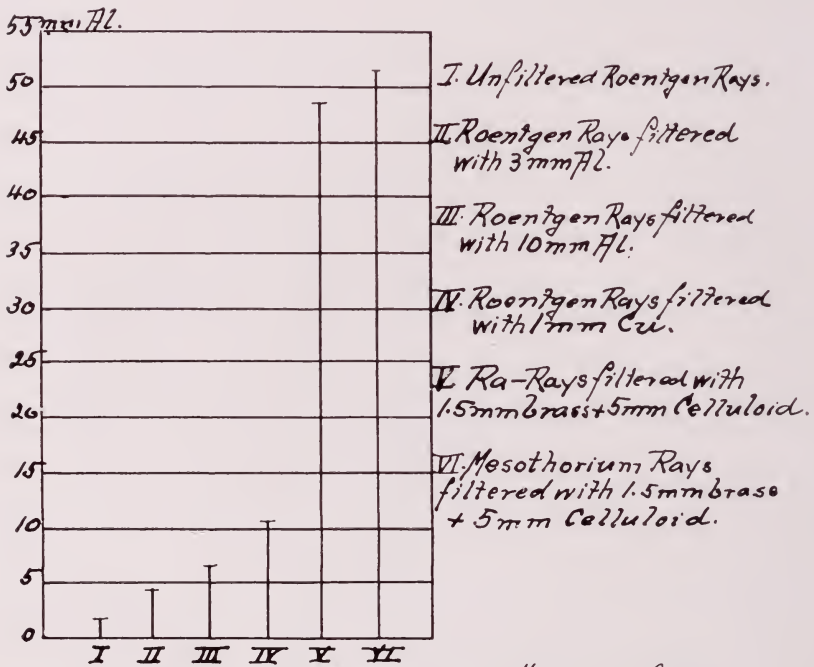 55 mm. Al.
50
45
40
35
30
25
20
15
10
5
0
I II III IV V VI
I. Unfiltered Roentgen Rays.
II Roentgen Rays filtered
with 3mm Al.
III. Roentgen Rays filtered
with 10mm Al.
IV. Roentgen Rays filtered
with 1mm Cu.
V. Ra-Rays filtered with
1.5mm brass+5mm Celluloid.
VI. Mesothorium Rays
filtered with 1.5mm brass
+ 5mm Celluloid.